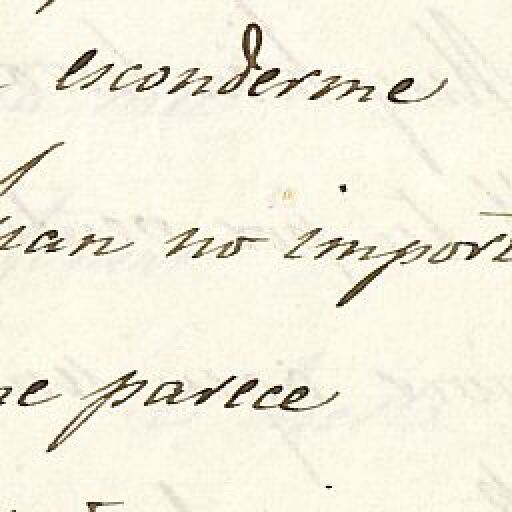 esconderme
no import
me parece